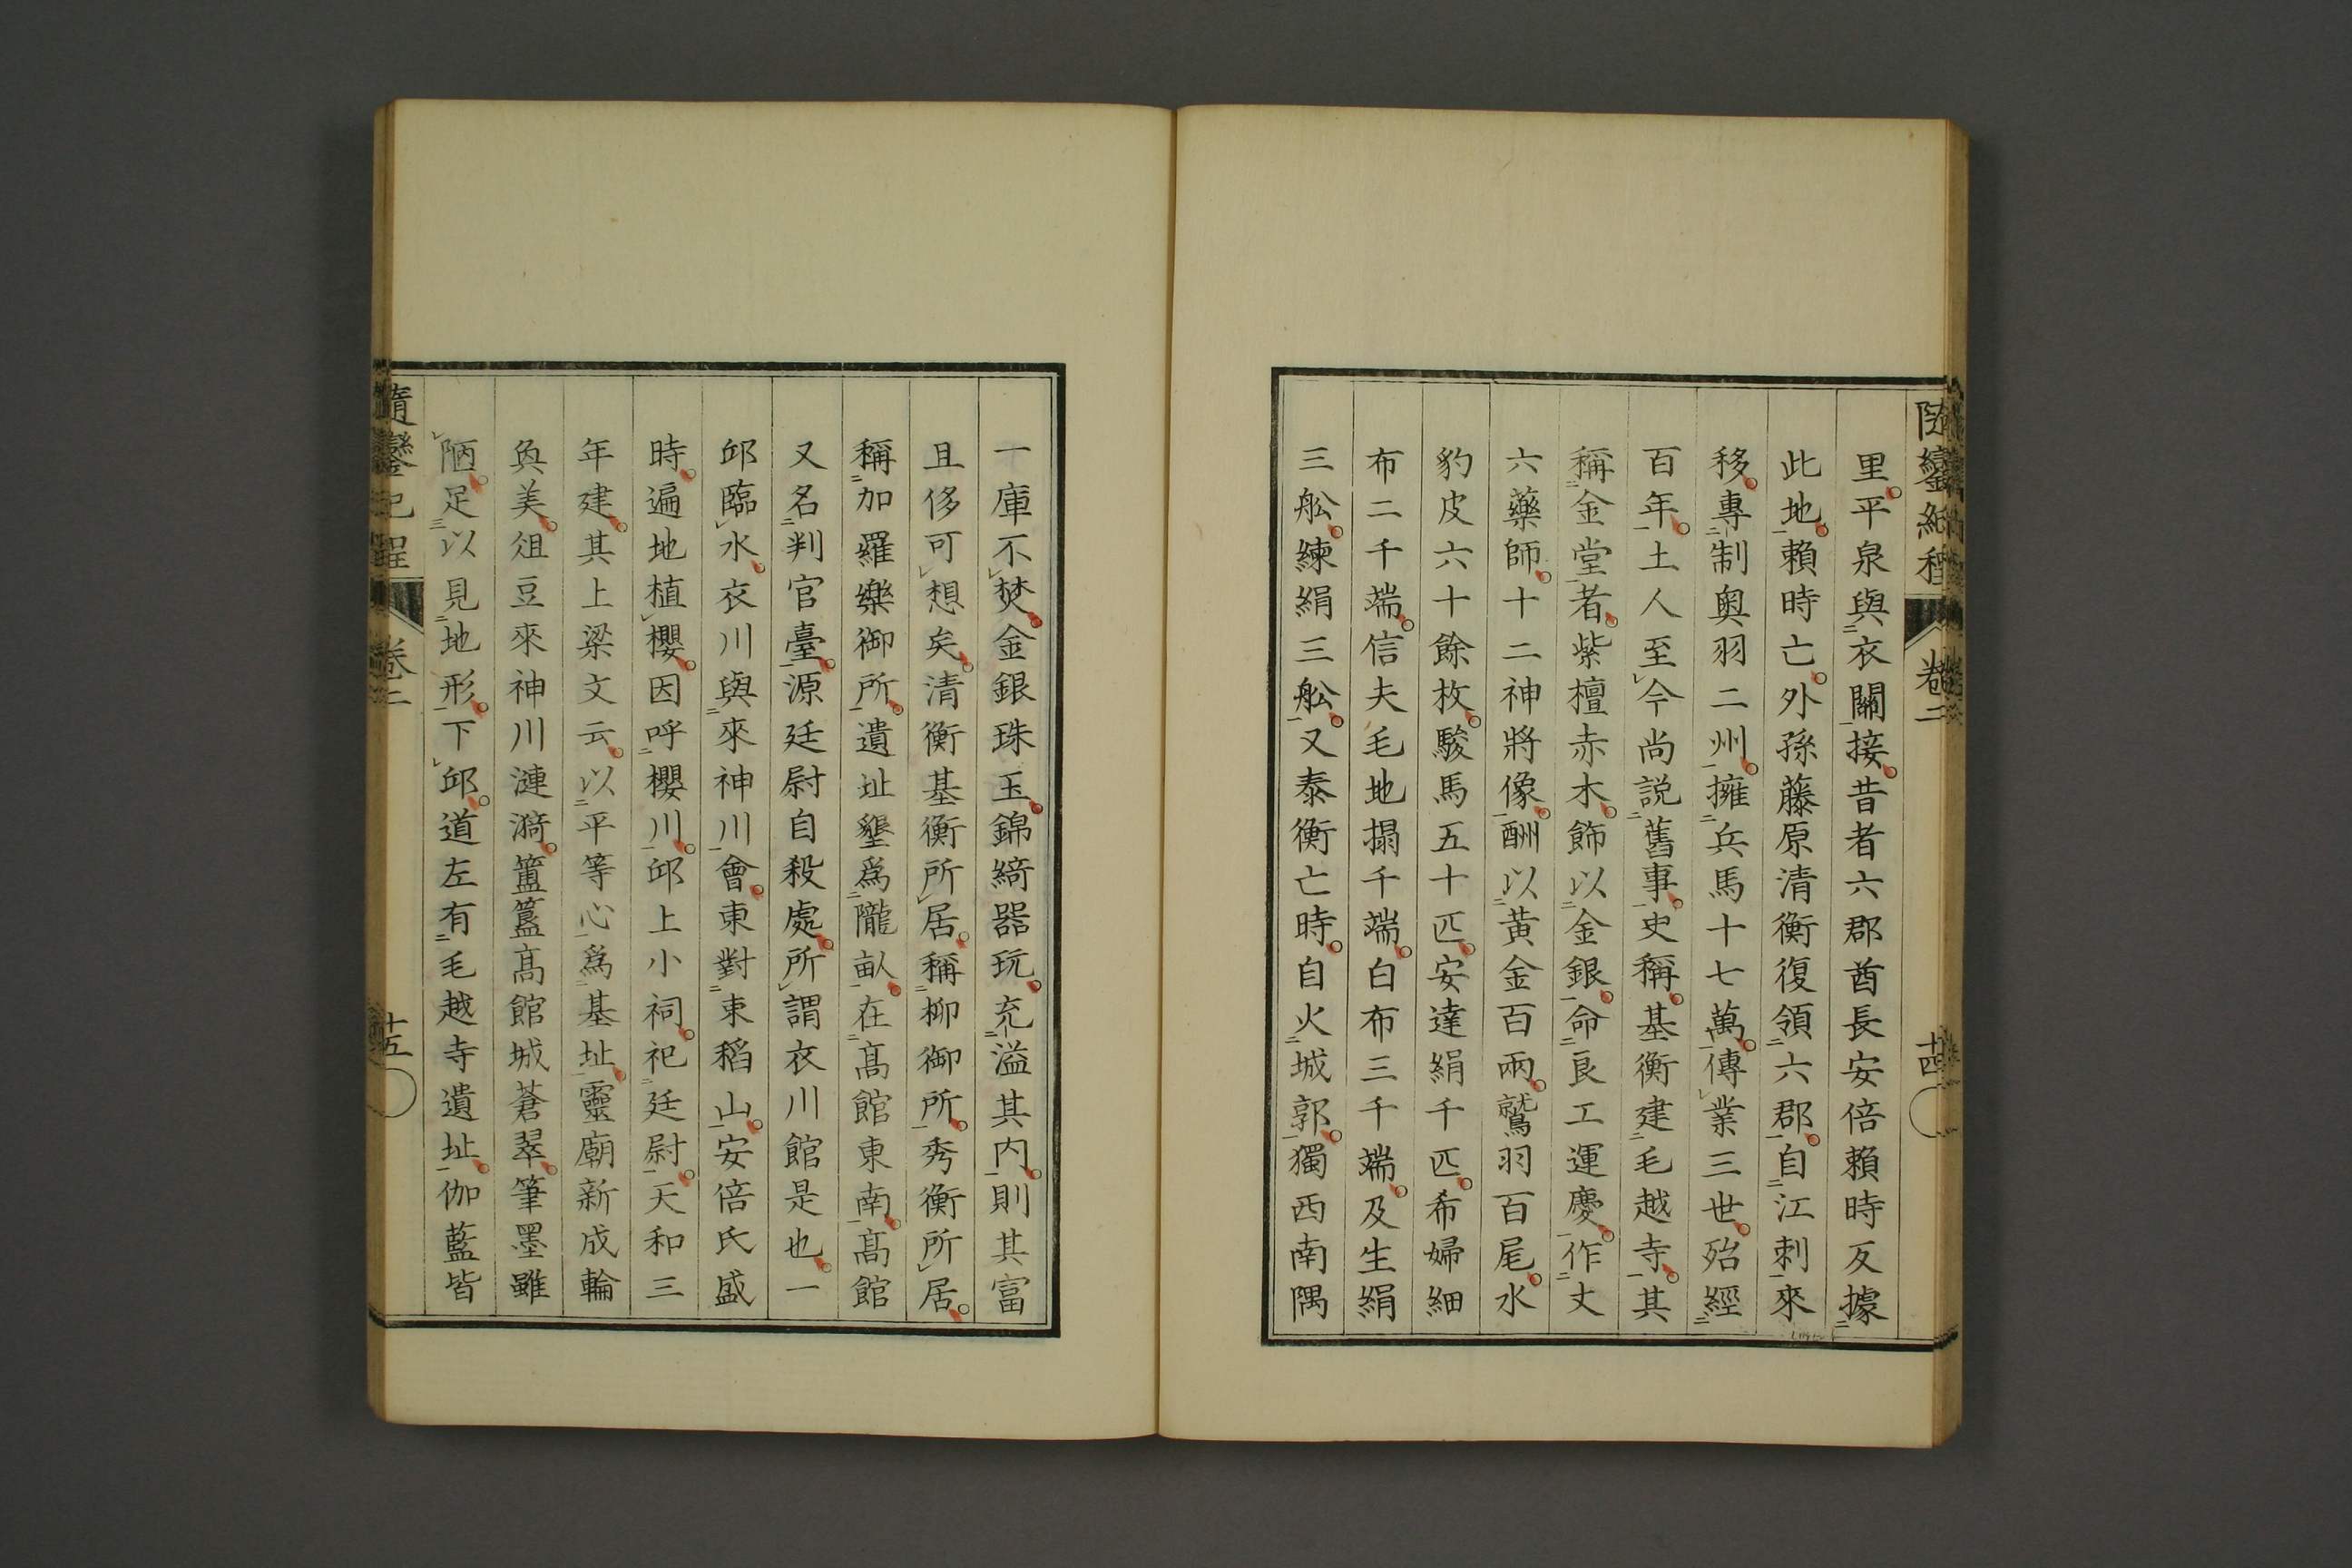 里平泉與衣關接昔者六郡酋長安倍賴時反據
此地賴時亡外孫藤原清衡復領六郡自江刺來
移專制奧羽二州擁兵馬十七萬傳業三世殆經
百年土人至今尚説舊事史稱基衡建毛越寺其
稱金堂者紫檀赤木飾以金銀命良工運慶作丈
六藥師十二神將像酬以黃金百兩鷲羽百尾水
豹皮六十餘枚駿馬五十匹安達絹千匹希婦細
布二千端信夫毛地搨千端白布三千端及生絹
三舩練絹三舩又泰衡亡時自火城郭獨西南隅
一庫不焚金銀珠玉錦綺器玩充溢其内則其富
且侈可想矣清衡基衡所居稱柳御所秀衡所居
稱加羅樂御所遺址墾爲隴畝在髙館東南髙館
又名判官臺源廷尉自殺處所謂衣川館是也一
邱臨水衣川與來神川會東對東稻山安倍氏盛
時遍地植櫻因呼櫻川邱上小祠祀廷尉天和三
年建其上梁文云以平等心爲基址靈廟新成輪
奐美俎豆來神川漣漪簠簋髙館城蒼翠筆墨雖
陋足以見地形下邱道左有毛越寺遺址伽藍皆
卷二
十四
隨鑾紀程
卷二
十五